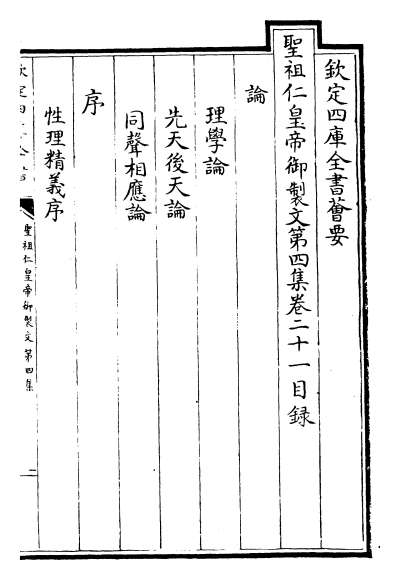 欽定四庫全書薈要
聖祖仁皇帝御製文第四集卷二十一目録
論
理學論
先天後天論
同聲相應論
序
性理精義序
聖祖仁皇帝御製文第四集